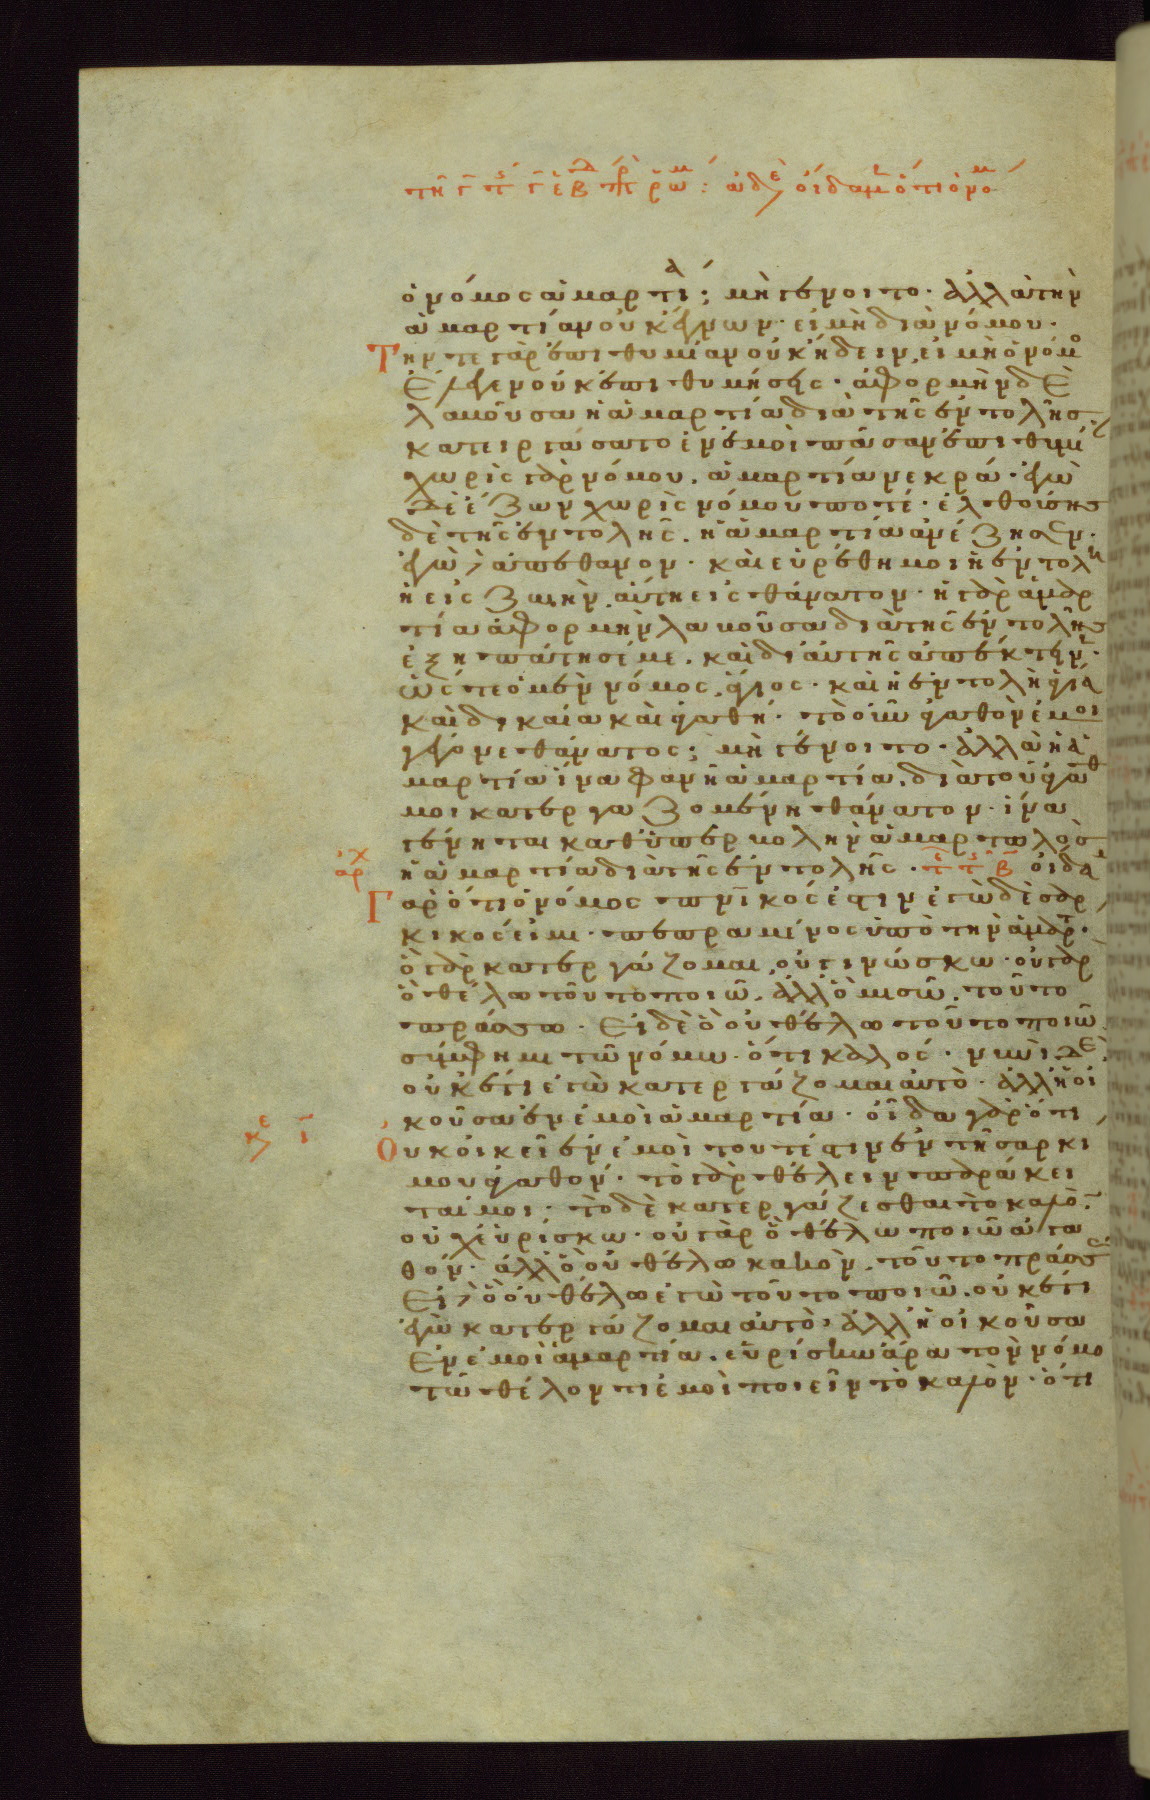 ὁ νόμος ἁμαρτία; μὴ γένοιτο· ἀλλὰ τὴν
ἁμαρτίαν οὐκ ἔγνων· εἰ μὴ διὰ νόμου·
Τήν τε γὰρ ἐπιθυμίαν οὐκ ἤδειν, εἰ μὴ ὁ νόμο
ἔλεγεν οὐκ ἐπιθυμήσεις· ἀφορμὴν δὲ
λαβοῦσα ἡ ἁμαρτία διὰ τῆς ἐντολῆς
κατειργάσατο ἐν ἐμοὶ πᾶσαν ἐπιθυμί
χωρὶς γὰρ νόμου. ἁμαρτία νεκρά· ἐγὼ
δὲ ἔζων χωρὶς νόμου ποτέ· ἐλθούσης
δὲ τῆς ἐντολῆς. ἡ ἁμαρτία ἀνέζησεν·
ἐγὼ δὲ ἀπέθανον· καὶ εὑρέθη μοι ἡ ἐντολὴ
ἡ εἰς ζωὴν, αὕτη εἰς θάνατον· ἡ γὰρ ἁμαρ
τία ἀφορμὴν λαβοῦσα διὰ τῆς ἐντολῆς
ἐξηπάτησέ με. καὶ δι αὐτῆς ἀπέκτεινεν·
ὥς τε ὁ μὲν νόμος, ἅγιος· καὶ ἡ ἐντολὴ ἁγία
καὶ δικαία καὶ ἀγαθή· τὸ οὖν ἀγαθὸν ἐμοι
γέγονε θάνατος; μὴ γένοιτο· ἀλλὰ ἡ ἁ
μαρτία ἵνα φανῆ ἁμαρτία. διὰ τοῦ ἀγαθ
μοι κατεργαζομένη θάνατον· ἵνα
γένηται καθ ὑπερβολὴν ἁμαρτωλὸς
ἡ ἁμαρτία διὰ τῆς ἐντολῆς· οἴδα
Γὰρ ὅτι ὁ νόμος πνικός ἐστιν ἐγὼ δὲ σαρ
κικός εἰμι· πεπραμένος ὑπὸ τὴν ἁμαρτ·
ὃ γὰρ κατεργάζομαι, οὐ γινώσκω· οὐ γὰρ
ὃ θέλω τοῦτο ποιῶ. ἀλλ ὃ μισῶ. τοῦτο
πράσσω· Εἰ δὲ ὃ οὐ θέλω τοῦτο ποιῶ
σύμφημι τῶ νόμω· ὅτι καλός· νυνὶ δὲ
οὐκέτι ἐγὼ κατεργάζομαι αὐτὸ· ἀλλ ἡ οἰ
κοῦσα ἐν ἐμοὶ ἁμαρτία· οἶδα γὰρ ὅτι
Οὐκ οἰκεῖ ἐν ἐμοὶ τουτέστιν ἐν τῆ σαρκι
μου ἀγαθον· τὸ γὰρ θέλειν παράκει
ταί μοι· τὸ δὲ κατεργάζεσθαι τὸ καλὸ
οὐχ εὑρίσκω· οὐ γὰρ ὃ θέλω ποιῶ ἀγα
θόν· ἀλλ ὃ οὐ θέλω κακὸν. τοῦτο πράσσ
Εἰ δὲ ὃ οὐ θέλω ἐγὼ τοῦτο ποιῶ. οὐκέτι
ἐγὼ κατεργάζομαι αὐτὸ· ἀλλ ἡ οἰκοῦσα
Ἐν ἐμοὶ ἁμαρτία. εὑρίσκω ἄρα τὸν νόμο
τῶ θέλοντι ἐμοὶ ποιεῖν τὸ καλὸν· ὅτι